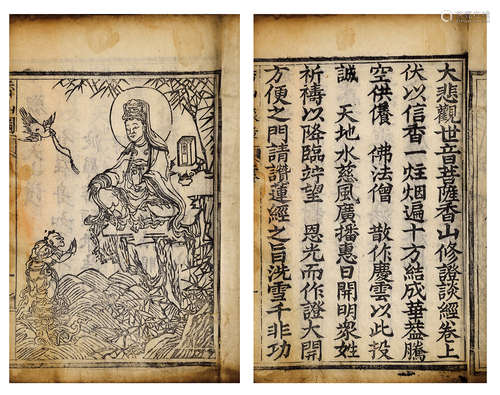 大悲觀世音菩薩香山修證談經卷上
伏以信香一炷烟遍十方結成華蓋騰
空供 佛法僧 散作慶雲以此投
誠 天地水慈風廣播惠日開明衆姓
祈禱以降臨竚望 恩光而作證大開
方便之門請讚蓮經之旨洗雪千非功